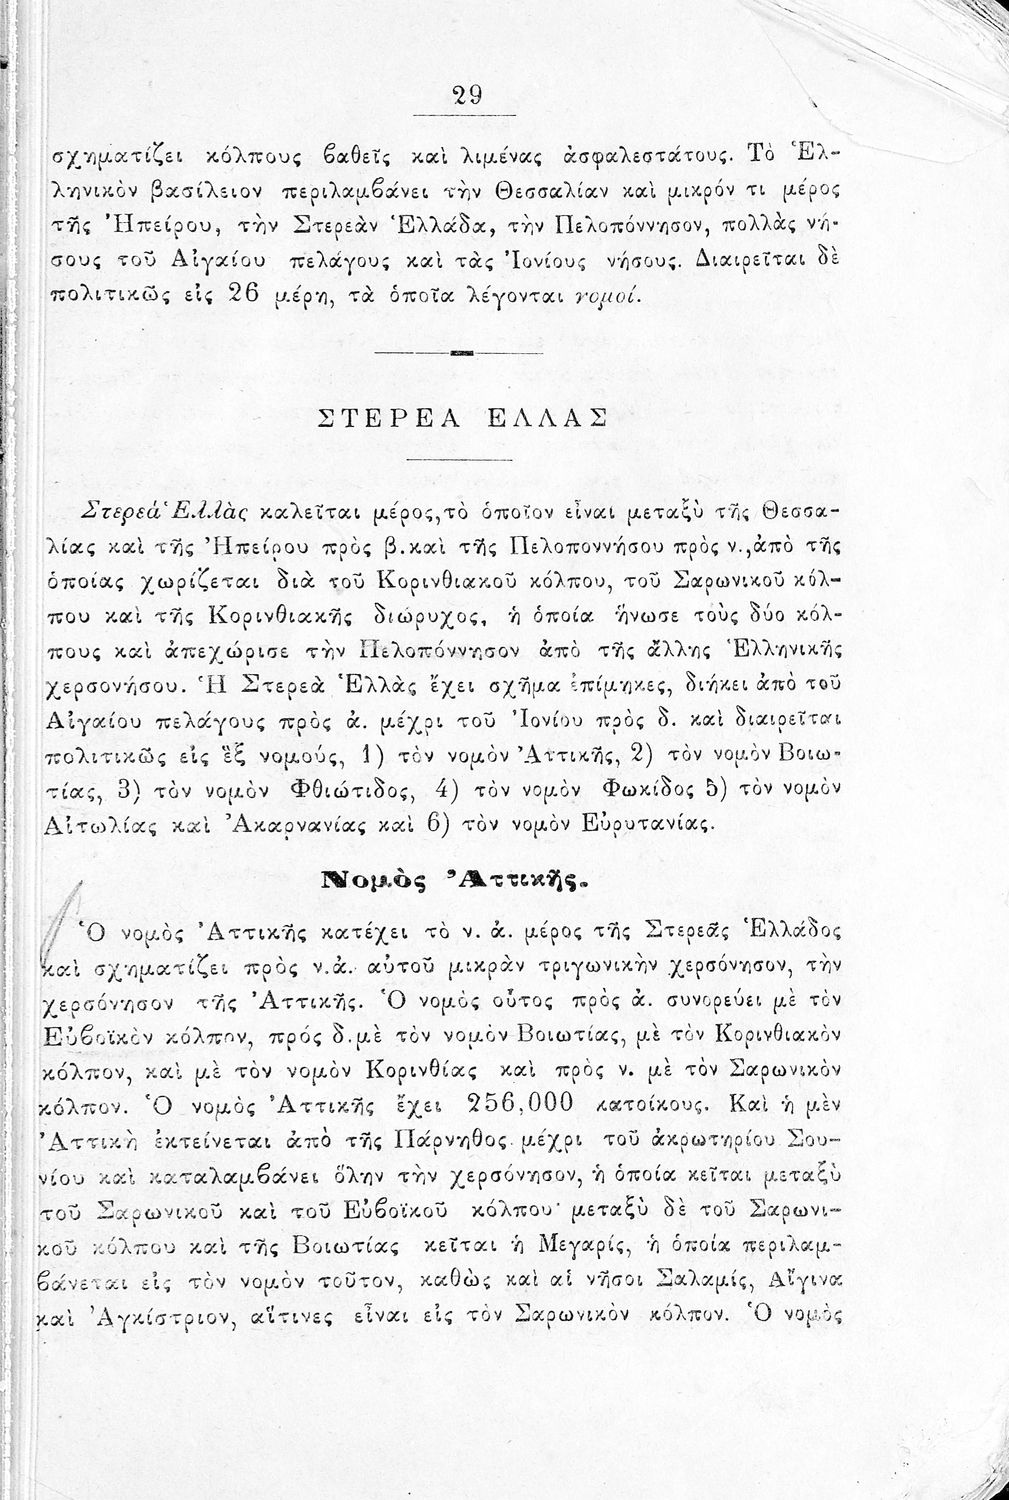 29
σχηματίζει κόλπους ϐαθεῖς καὶ λιμένας ἀσφαλεστάτους. Τὸ Ἑλ-
ληνικὸν βασίλειον περιλαμϐάνει τὴν Θεσσαλίαν καὶ μικρόν τι μέρος
τῆς Ἠπείρου, τὴν Στερεὰν Ἑλλάδα, τὴν Πελοπόννησον, πολλὰς νή-
σους τοῦ Αἰγαίου πελάγους καὶ τὰς Ἰονίους νήσους. Διαιρεῖται δὲ
πολιτικῶς εἰς 26 μέρη, τὰ ὁποῖα λέγονται νομοί.
ΣΤΕΡΕΑ ΕΛΛΑΣ
Στερεὰ Ἑλλὰς καλεῖται μέρος,τὸ ὁποῖον εἶναι μεταξὺ τῆς Θεσσα-
λίας καὶ τῆς Ἠπείρου πρὸς β.καὶ τῆς Πελοποννήσου πρὸς ν.,ἀπὸ τῆς
ὁποίας χωρίζεται διὰ τοῦ Κορινθιακοῦ κόλπου, τοῦ Σαρωνικοῦ κόλ-
που καὶ τῆς Κορινθιακῆς διώρυχος, ἡ ὁποία ἥνωσε τοὺς δύο κόλ-
πους καὶ ἀπεχώρισε τὴν Πελοπόννησον ἀπὸ τῆς ἄλλης Ἑλληνικῆς
χερσονήσου. Ἡ Στερεὰ Ἑλλὰς ἔχει σχῆμα ἐπίμηκες, διήκει ἀπὸ τοῦ
Αἰγαίου πελάγους πρὸς ἀ. μέχρι τοῦ Ἰονίου πρὸς δ. καὶ διαιρεῖται
πολιτικῶς εἰς ἓξ νομούς, 1) τὸν νομὸν Ἀττικῆς, 2) τὸν νομὸν Βοιω-
τίας, 3) τὸν νομὸν Φθιώτιδος, 4) τὸν νομὸν Φωκίδος 5) τὸν νομὸν
Αἰτωλίας καὶ Ἀκαρνανίας καὶ 6) τὸν νομὸν Εὐρυτανίας.
Νομὸς Ἀττικῆς.
Ὁ νομὸς Ἀττικῆς κατέχει τὸ ν. ἀ. μέρος τῆς Στερεᾶς Ἑλλάδος
καὶ σχηματίζει πρὸς ν.ἀ. αὐτοῦ μικρὰν τριγωνικὴν χερσόνησον, τὴν
χερσόνησον τῆς Ἀττικῆς. Ὁ νομὸς οὗτος πρὸς ἀ. συνορεύει μὲ τὸν
Εὐϐοϊκὸν κόλπον, πρός δ.μὲ τὸν νομὸν Βοιωτίας, μὲ τὸν Κορινθιακὸν
κόλπον, καὶ μὲ τὸν νομὸν Κορινθίας καὶ πρὸς ν. μὲ τὸν Σαρωνικὸν
κόλπον. Ὁ νομὸς Ἀττικῆς ἔχει 256,000 κατοίκους. Καὶ ἡ μὲν
Ἀττικὴ ἐκτείνεται ἀπὸ τῆς Πάρνηθος μέχρι τοῦ ἀκρωτηρίου Σου-
νίου καὶ καταλαμϐάνει ὅλην τὴν χερσόνησον, ἡ ὁποία κεῖται μεταξὺ
τοῦ Σαρωνικοῦ καὶ τοῦ Εὐϐοϊκοῦ κόλπου· μεταξὺ δὲ τοῦ Σαρωνι-
κοῦ κόλπου καὶ τῆς Βοιωτίας κεῖται ἡ Μεγαρίς, ἡ ὁποία περιλαμ-
ϐάνεται εἰς τὸν νομὸν τοῦτον, καθὼς καὶ αἱ νῆσοι Σαλαμίς, Αἴγινα
καὶ Ἀγκίστριον, αἵτινες εἶναι εἰς τὸν Σαρωνικὸν κόλπον. Ὁ νομὸς